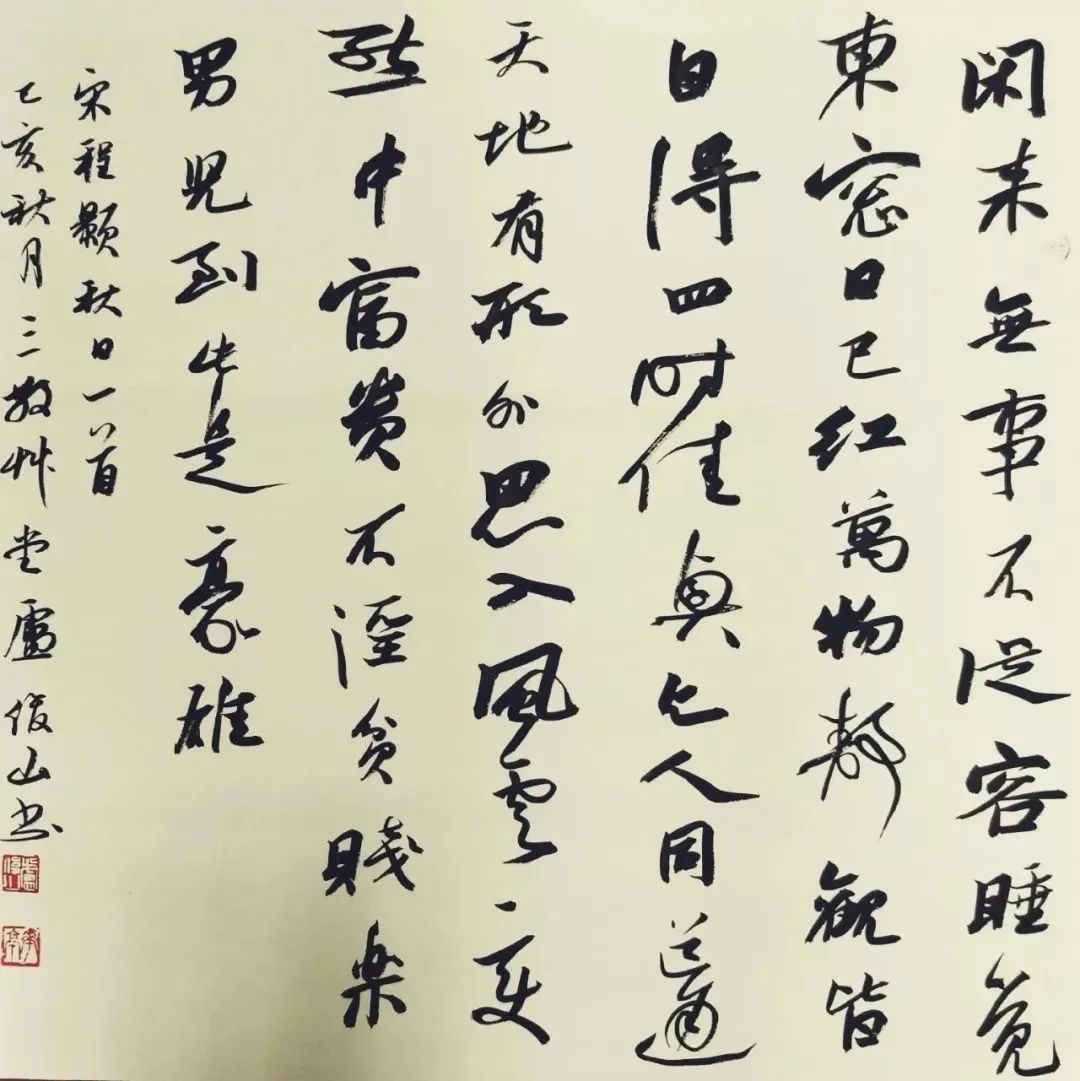 闲来無事不従容睡覚
東窓日已红萬物静觀皆
自得四时佳興与人同道通
天地有形外思入風雲变
態中富贵不淫贫賤楽
男児到此是豪雄
宋程颢秋日一首
己亥秋月三艸堂盧俊山书